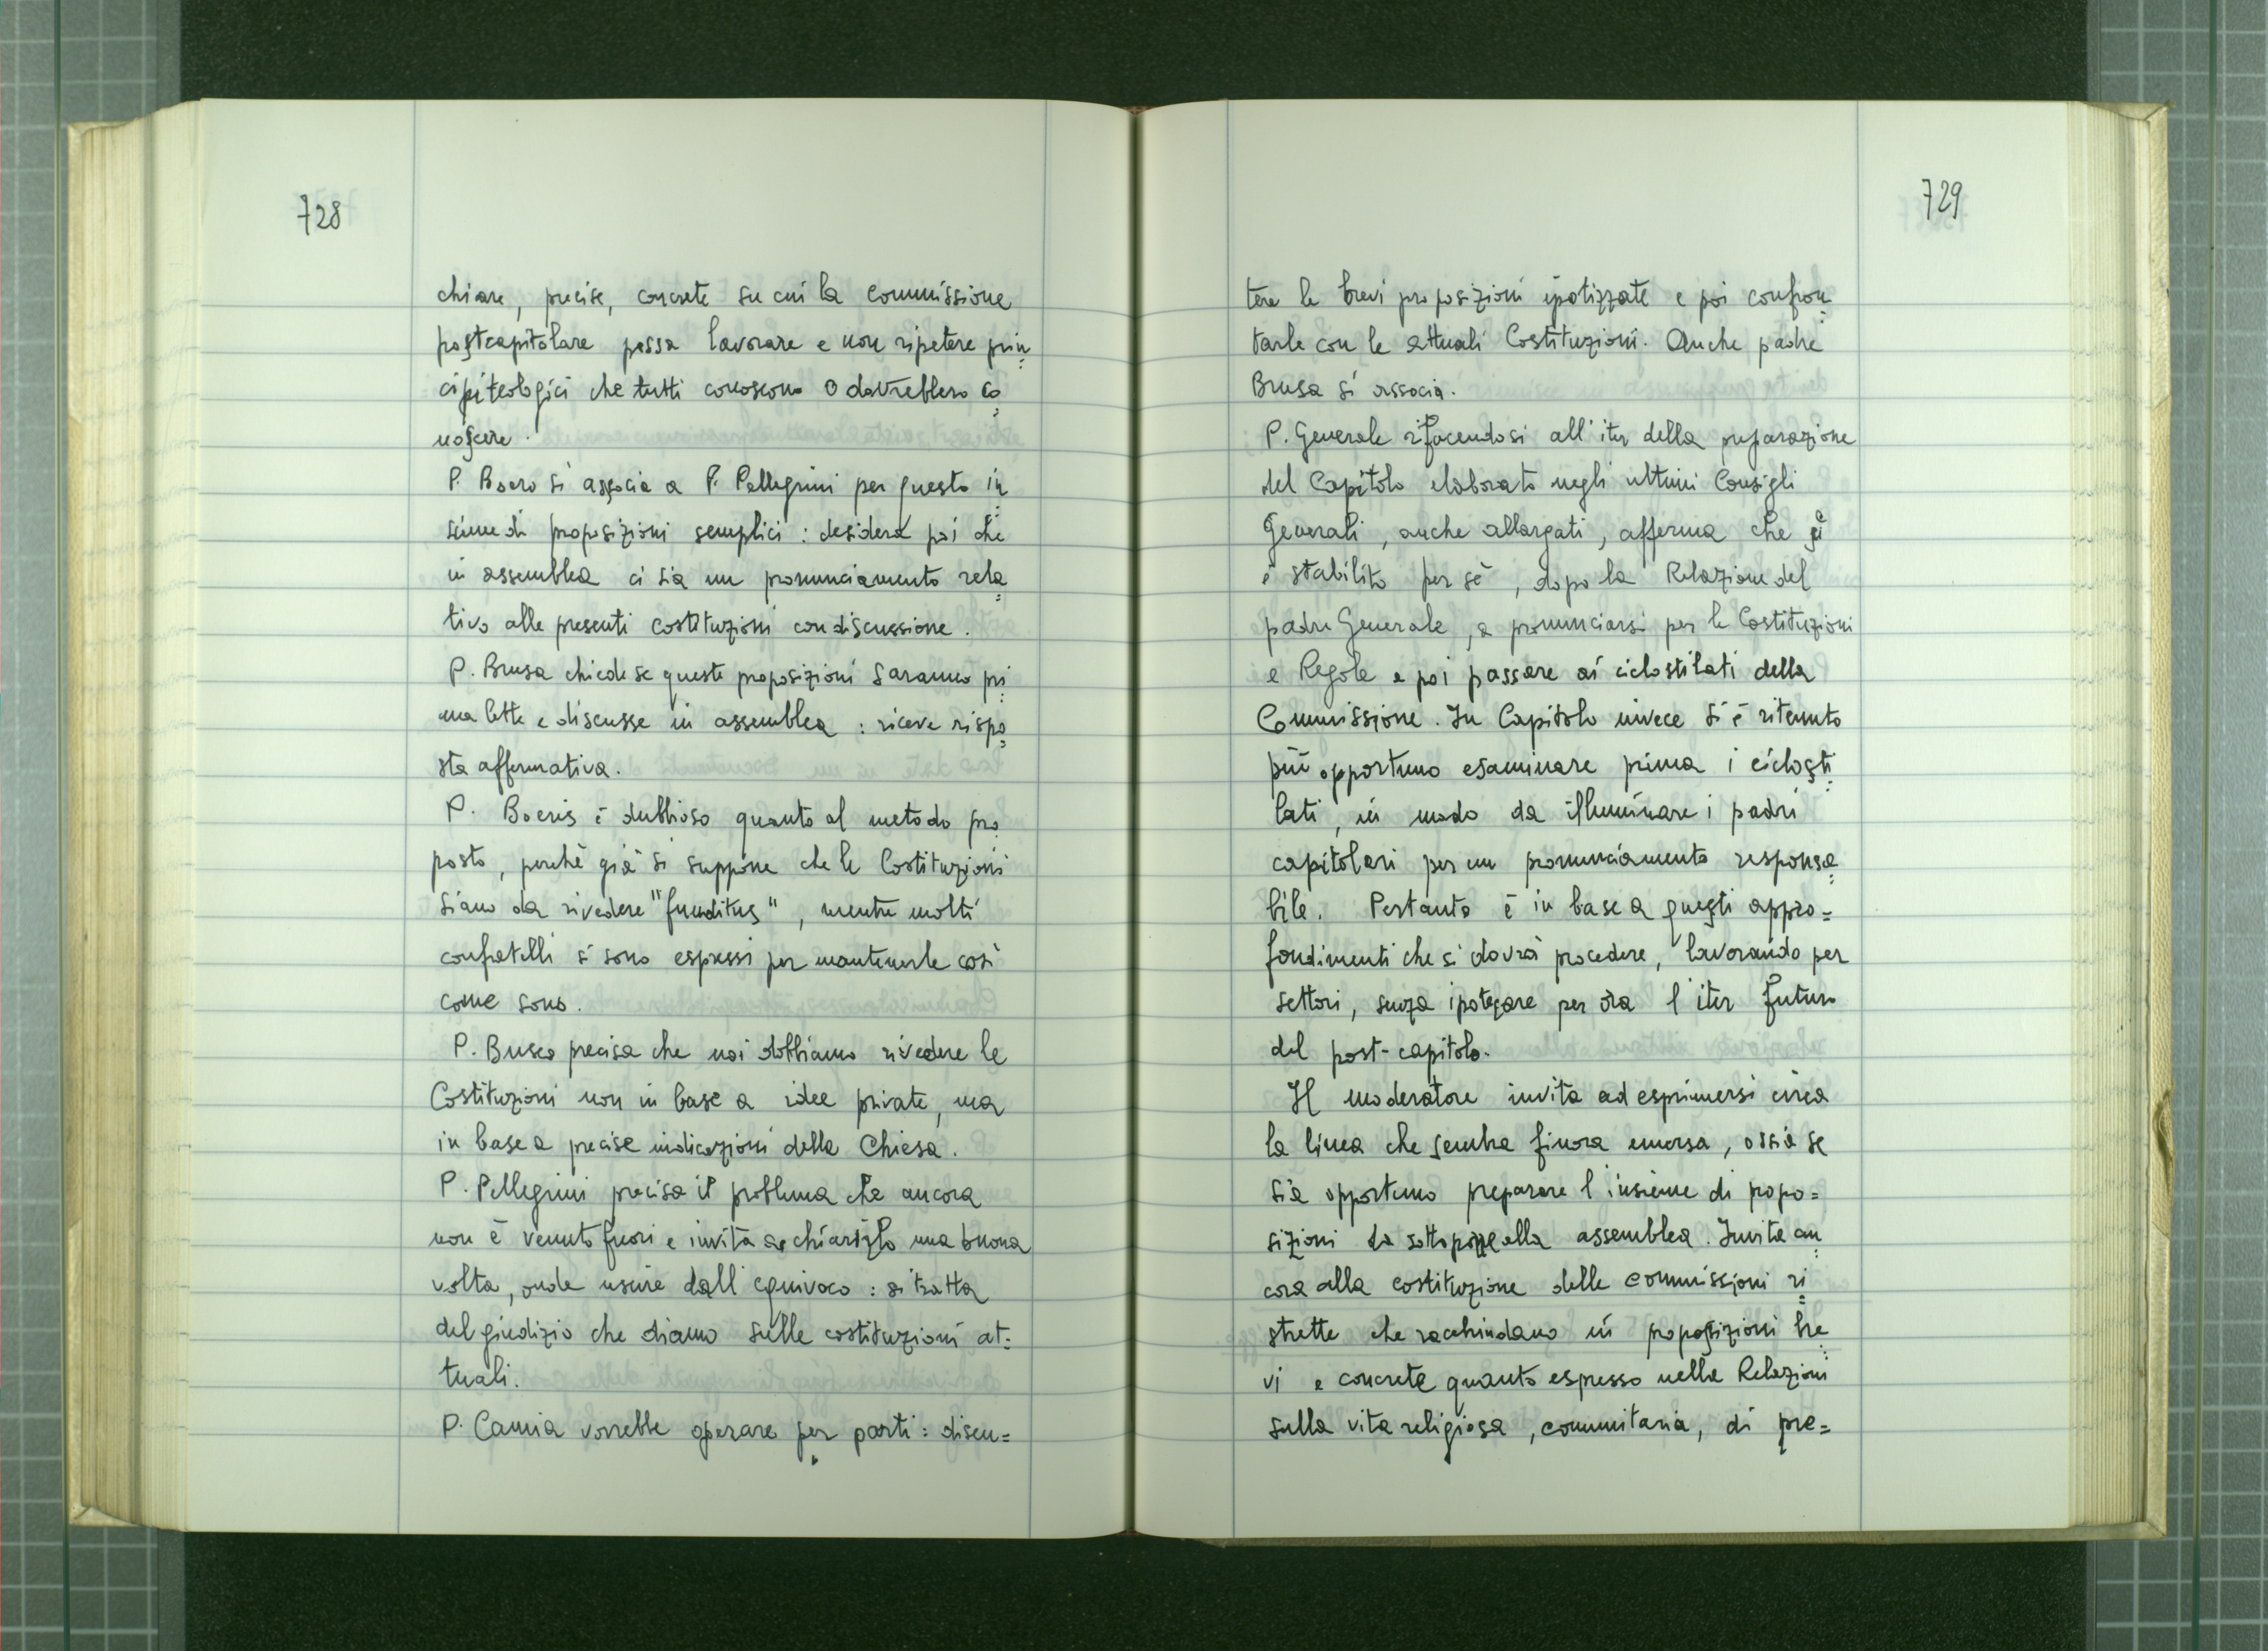 728
chiare, precise, concrete su cui la commissione
postcapitolare possa lavorare e non ripetere prin=
cipi teologici che tutti conoscono o dovrebbero co=
noscere.
P. Boero si associa a P. Pellegrini per questo in=
sieme di proposizioni semplici: desidera poi che
in assemblea ci sia un pronunciamento rela=
tivo alle presenti costituzioni con discussione.
P. Brusa chiede se queste proposizioni saranno pri=
ma lette e discusse in assemblea: riceve rispo=
sta affermativa.
P. Boeris è dubbioso quanto al metodo pro=
posto, perchè già si suppone che le Costituzioni
siano da rivedere "funditus", mentre molti
confratelli si sono espressi per mantenerle così
come sono.
P. Busco precisa che noi dobbiamo rivedere le
Costituzioni non in base a idee private, ma
in base a precise indicazioni della Chiesa.
P. Pellegrini precisa il problema che ancora
non è venuto fuori e invita a chiarirlo una buona
volta, onde uscire dall'equivoco: si tratta
del giudizio che diamo sulle costituzioni at=
tuali.
P. Camia vorrebbe operare per parti: discu=
729
tere le brevi proposizioni ipotizzate e poi confron=
tarle con le attuali Costituzioni. Anche padre
Brusa si associa.
P. Generale rifacendosi all'iter della preparazione
del Capitolo elaborato negli ultimi Consigli
Generali, anche allargati, afferma che si
è stabilito per sè, dopo la Relazione del
padre Generale, a pronunciarsi per le Costituzioni
e Regole e poi passare ai ciclostilati della
Commissione. In Capitolo invece si è ritenuto
più opportuno esaminare prima i ciclosti=
lati, in modo da illuminare i padri
capitolari per un pronunciamento responsa=
bile. Pertanto è in base a questi appro=
fondimenti che si dovrà procedere, lavorando per
settori, senza ipotecare per ora l'iter futuro
del post-capitolo.
Il moderatore invita ad esprimersi circa
la linea che sembra finora emersa, ossia se
sia opportuno preparare l'insieme di propo=
sizioni da sottoporre alla assemblea. Invita an=
cora alla costituzione delle commissioni ri=
strette che racchiudano in proposizioni bre=
vi e concrete quanto espresso nelle Relazioni
sulla vita religiosa, comunitaria, di pre=